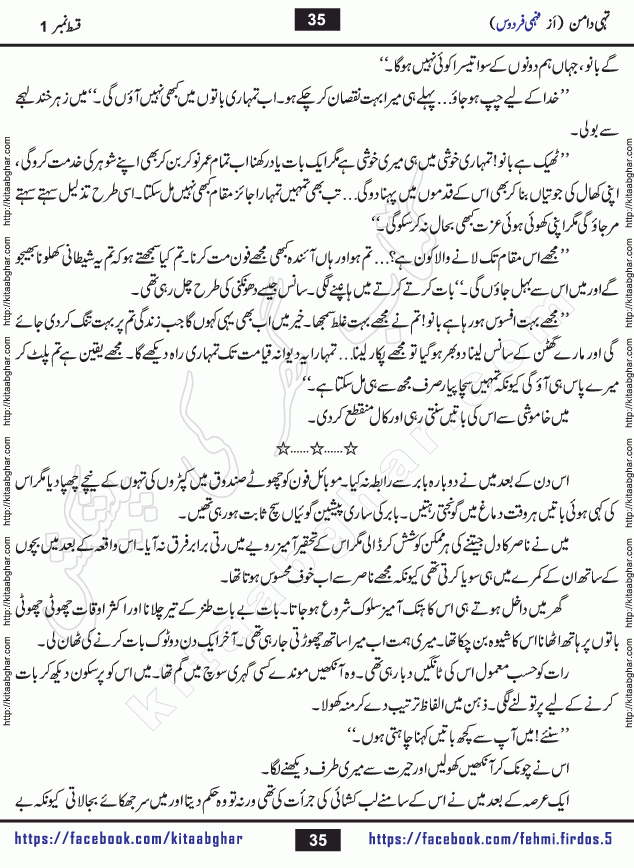 تہی دامن (از فہمی فردوس) 35 قسط نمبر 1
گے بانو، جہاں ہم دونوں کے سوا تیسرا کوئی نہیں ہوگا۔‘‘
’’خدا کے لیے چپ ہو جاؤ... پہلے ہی میرا بہت نقصان کر چکے ہو۔ اب تمہاری باتوں میں کبھی نہیں آؤں گی۔‘‘ میں زہر خند لہجے
سے بولی۔
’’ٹھیک ہے بانو! تمہاری خوشی میں ہی میری خوشی ہے مگر ایک بات یاد رکھنا اب تمام عمر نوکر بن کر بھی اپنے شوہر کی خدمت کرو گی،
اپنی کھال کی جوتیاں بنا کر بھی اس کے قدموں میں پہنا دو گی... تب بھی تمہیں تمہارا جائز مقام کبھی نہیں مل سکتا۔ اسی طرح تذلیل سہتے سہتے
مر جاؤ گی مگر اپنی کھوئی ہوئی عزت کبھی بحال نہ کر سکو گی۔‘‘
’’مجھے اس مقام تک لانے والا کون ہے؟... تم ہو اور ہاں آئندہ کبھی مجھے فون مت کرنا۔ تم کیا سمجھتے ہو کہ تم یہ شیطانی کھلونا بھیجو
گے اور میں اس سے بہل جاؤں گی۔‘‘ بات کرتے کرتے میں ہانپنے لگی۔ سانس جیسے دھونکنی کی طرح چل رہی تھی۔
’’مجھے بہت افسوس ہو رہا ہے بانو! تم نے مجھے بہت غلط سمجھا۔ خیر میں اب بھی یہی کہوں گا جب زندگی تم پر بہت تنگ کر دی جائے
گی اور مارے گھٹن کے سانس لینا دوبھر ہو گیا تو مجھے پکار لینا... تمہارا یہ دیوانہ قیامت تک تمہاری راہ دیکھے گا۔ مجھے یقین ہے تم پلٹ کر
میرے پاس ہی آؤ گی کیونکہ تمہیں سچا پیار صرف مجھ سے ہی مل سکتا ہے۔‘‘
میں خاموشی سے اس کی باتیں سنتی رہی اور کال منقطع کر دی۔
☆......☆......☆
اس دن کے بعد میں نے دوبارہ بابر سے رابطہ نہ کیا۔ موبائل فون کو چھوٹے صندوق میں کپڑوں کی تہوں کے نیچے چھپا دیا مگر اس
کی کہی ہوئی باتیں ہر وقت دماغ میں گونجتی رہتیں۔ بابر کی ساری پیشین گوئیاں سچ ثابت ہو رہی تھیں۔
میں نے ناصر کا دل جیتنے کی ہر ممکن کوشش کر ڈالی مگر اس کے تحقیر آمیز رویے میں رتی برابر فرق نہ آیا۔ اس واقعہ کے بعد میں بچوں
کے ساتھ ان کے کمرے میں ہی سویا کرتی تھی کیونکہ مجھے ناصر سے اب خوف محسوس ہوتا تھا۔
گھر میں داخل ہوتے ہی اس کا ہتک آمیز سلوک شروع ہو جاتا۔ بات بے بات طنز کے تیر چلانا اور اکثر اوقات چھوٹی چھوٹی
باتوں پر ہاتھ اٹھانا اس کا شیوہ بن چکا تھا۔ میری ہمت اب میرا ساتھ چھوڑتی جا رہی تھی۔ آخر ایک دن دوٹوک بات کرنے کی ٹھان لی۔
رات کو حسب معمول اس کی ٹانگیں دبا رہی تھی۔ وہ آنکھیں موندے کسی گہری سوچ میں گم تھا۔ میں اس کو پرسکون دیکھ کر بات
کرنے کے لیے پر تولنے لگی۔ ذہن میں الفاظ ترتیب دے کر منہ کھولا۔
’’سنئے! میں آپ سے کچھ باتیں کہنا چاہتی ہوں۔‘‘
اس نے چونک کر آنکھیں کھولیں اور حیرت سے میری طرف دیکھنے لگا۔
ایک عرصہ کے بعد میں نے اس کے سامنے لب کشائی کی جرأت کی تھی ورنہ تو وہ حکم دیتا اور میں سر جھکائے بجا لاتی کیونکہ بے
https://facebook.com/kitaabghar 35 https://facebook.com/fehmi.firdos.5
http://kitaabghar.com
http://kitaabghar.com
http://kitaabghar.com
http://kitaabghar.com
http://kitaabghar.com
http://kitaabghar.com
http://kitaabghar.com
http://kitaabghar.com
http://kitaabghar.com
http://kitaabghar.com
http://kitaabghar.com
http://kitaabghar.com
کتاب گھر کی پیشکش
kitaabghar.com